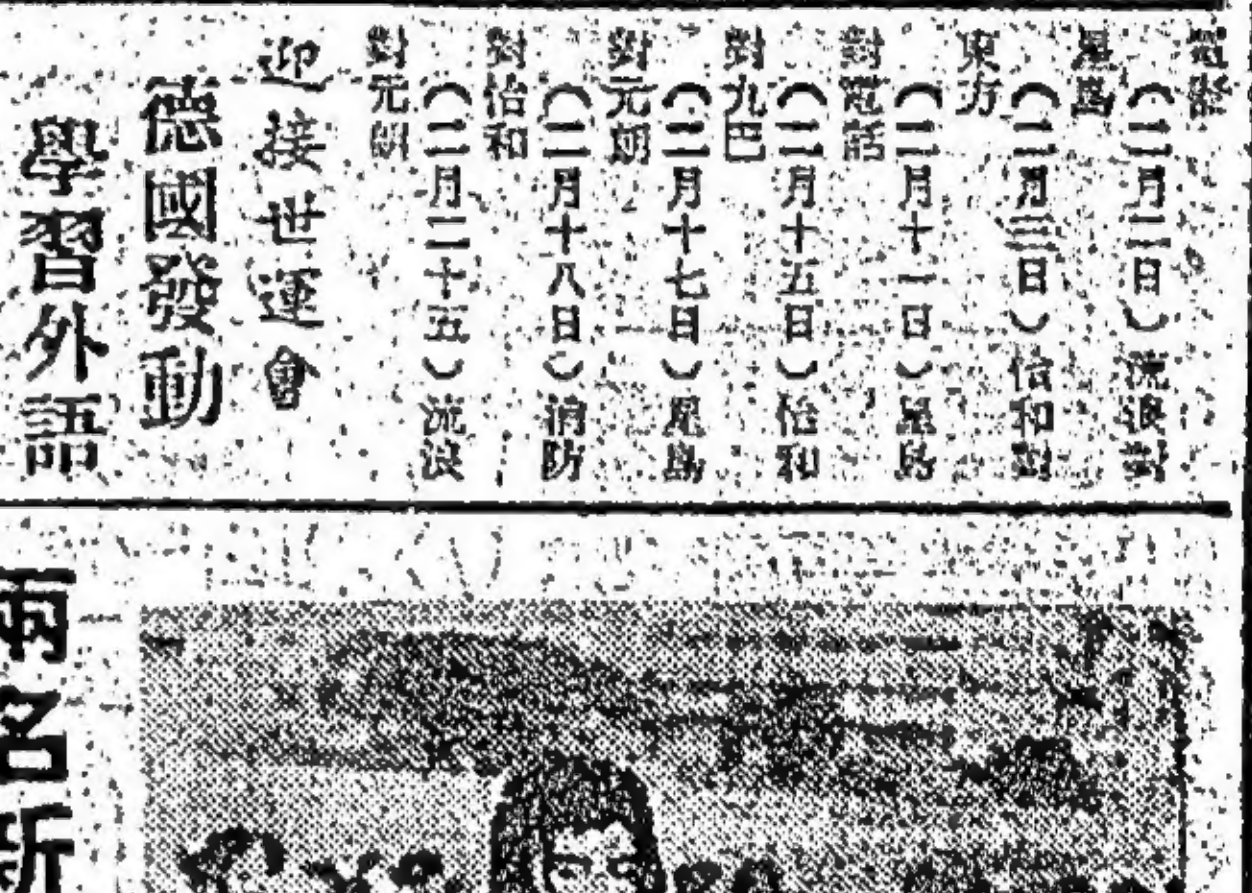 電話
（二月二日）流浪對
星島
（二月三日）怡和對
東方
（二月十一日）星島
對電話
（二月十五日）怡和
對九巴
（二月十七日）星島
對元朗
（二月十八日）消防
對怡和
（二月二十五）流浪
對元朗
迎接世運會
德國發動
學習外語
兩名新